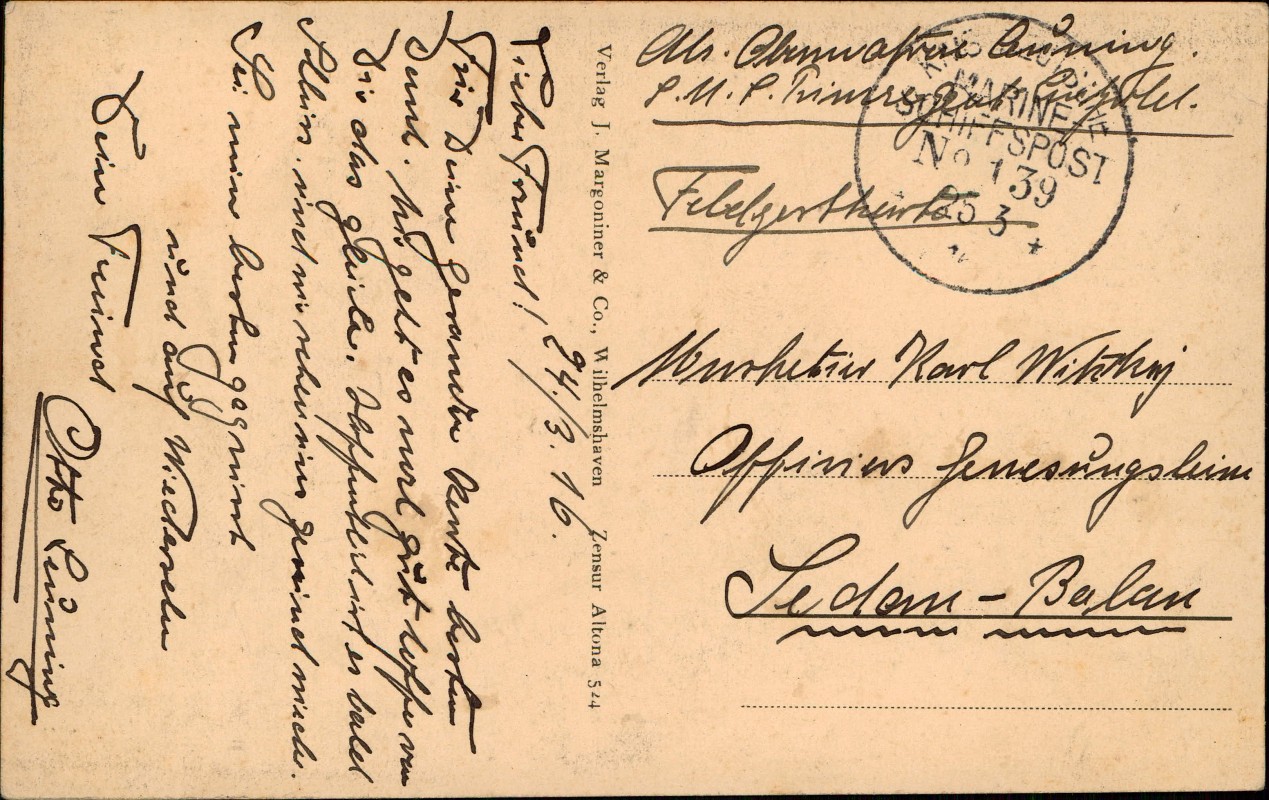 Abs. Obermatrose Lüning.
S. M. S. Prinzregent Luitpold.
Feldpostkarte
KAIS. DEUTSCHE
MARINE-
SCHIFFSPOST
No 139
25 3
Musketier Karl
Offiziers Genesungsheim
Sedan - Balan
Verlag J. Margoniner & Co., Wilhelmshaven Zensur Altona 544
24./3. 16.
Lieber Freund!
Für Deine gesandte Karte besten
Dank. Mir geht es noch gut hoffe von
Dir das gleiche. Hoffentlich ist es bald
Schluss, und wir sehen uns gesund wieder.
Sei nun bestens gegrüsst
und auf Wiedersehn
Dein Freund
Otto Lüning